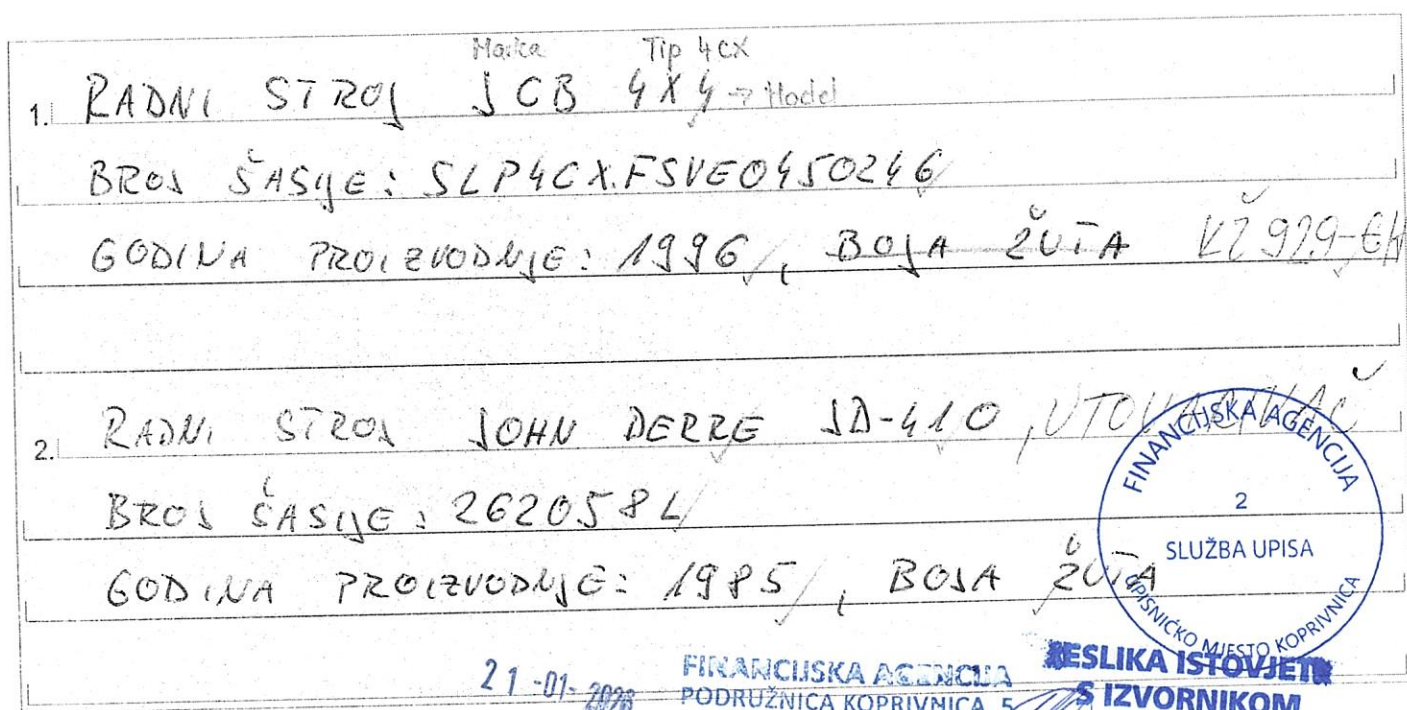 Marka Tip 4CX
1. RADNI STROJ JCB 4X4 → Model
BROJ ŠASIJE: SLP4CX.FSVE0450246
GODINA PROIZVODNJE: 1996, BOJA ŽUTA KŽ 929-EH
2. RADNI STROJ JOHN DERRE JD-410, UTOVARIVAČ
BROJ ŠASIJE: 262058L
GODINA PROIZVODNJE: 1985, BOJA ŽUTA
FINANCIJSKA AGENCIJA
2
SLUŽBA UPISA
UPISNIČKO MJESTO KOPRIVNICA
21-01-
FINANCIJSKA AGENCIJA
PODRUŽNICA KOPRIVNICA 5
PRESLIKA ISTOVJETNA
S IZVORNIKOM